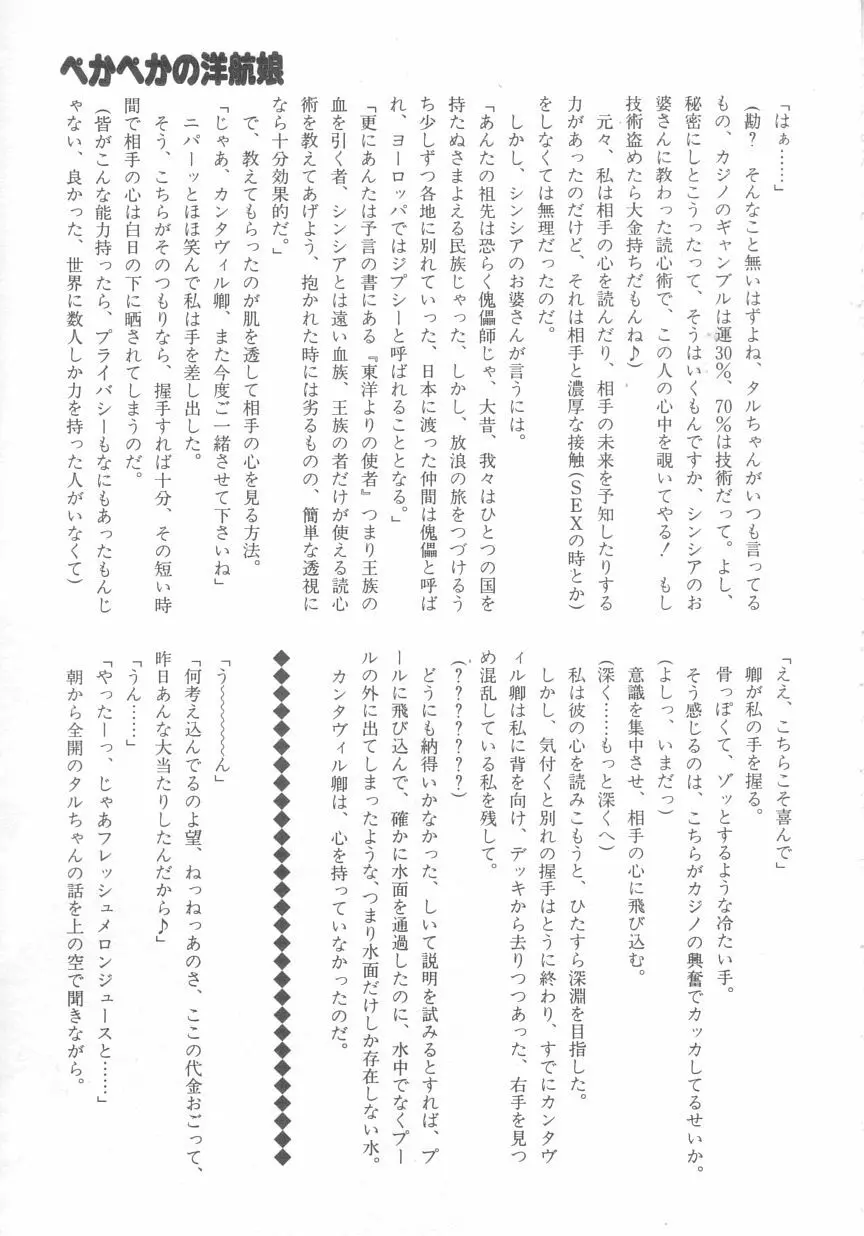 ぺかぺかの洋航娘
「はぁ……」
(勘?　そんなこと無いはずよね、タルちゃんがいつも言ってる
もの、カジノのギャンブルは運30%、70%は技術だって。よし、
秘密にしとこうったって、そうはいくもんですか、シンシアのお
婆さんに教わった読心術で、この人の心中を覗いてやる!　もし
技術盗めたら大金持ちだもんね♪)
　元々、私は相手の心を読んだり、相手の未来を予知したりする
力があったのだけど、それは相手と濃厚な接触(SEXの時とか)
をしなくては無理だったのだ。
　しかし、シンシアのお婆さんが言うには。
「あんたの祖先は恐らく傀儡師じゃ、大昔、我々はひとつの国を
持たぬさまよえる民族じゃった、しかし、放浪の旅をつづけるう
ち少しずつ各地に別れていった、日本に渡った仲間は傀儡と呼ば
れ、ヨーロッパではジプシーと呼ばれることとなる。」
「更にあんたは予言の書にある『東洋よりの使者』つまり王族の
血を引く者、シンシアとは遠い血族、王族の者だけが使える読心
術を教えてあげよう、抱かれた時には劣るものの、簡単な透視に
なら十分効果的だ。」
　で、教えてもらったのが肌を透して相手の心を見る方法。
「じゃあ、カンタヴィル卿、また今度ご一緒させて下さいね」
　ニパーッとほほ笑んで私は手を差し出した。
　そう、こちらがそのつもりなら、握手すれば十分、その短い時
間で相手の心は白日の下に晒されてしまうのだ。
(皆がこんな能力持ったら、プライバシーもなにもあったもんじ
ゃない、良かった、世界に数人しか力を持った人がいなくて)
「ええ、こちらこそ喜んで」
　卿が私の手を握る。
　骨っぽくて、ゾッとするような冷たい手。
　そう感じるのは、こちらがカジノの興奮でカッカしてるせいか。
(よしっ、いまだっ)
　意識を集中させ、相手の心に飛び込む。
(深く……もっと深くへ)
　私は彼の心を読みこもうと、ひたすら深淵を目指した。
　しかし、気付くと別れの握手はとうに終わり、すでにカンタヴ
ィル卿は私に背を向け、デッキから去りつつあった、右手を見つ
め混乱している私を残して。
(???????)
　どうにも納得いかなかった、しいて説明を試みるとすれば、プ
ールに飛び込んで、確かに水面を通過したのに、水中でなくプー
ルの外に出てしまったような、つまり水面だけしか存在しない水。
　カンタヴィル卿は、心を持っていなかったのだ。
◆◆◆◆◆◆◆◆◆◆◆◆◆◆◆◆◆◆◆◆◆◆◆◆◆
「う～～～～～ん」
「何考え込んでるのよ望、ねっねっあのさ、ここの代金おごって、
昨日あんな大当たりしたんだから♪」
「うん……」
「やったーっ、じゃあフレッシュメロンジュースと……」
　朝から全開のタルちゃんの話を上の空で聞きながら。